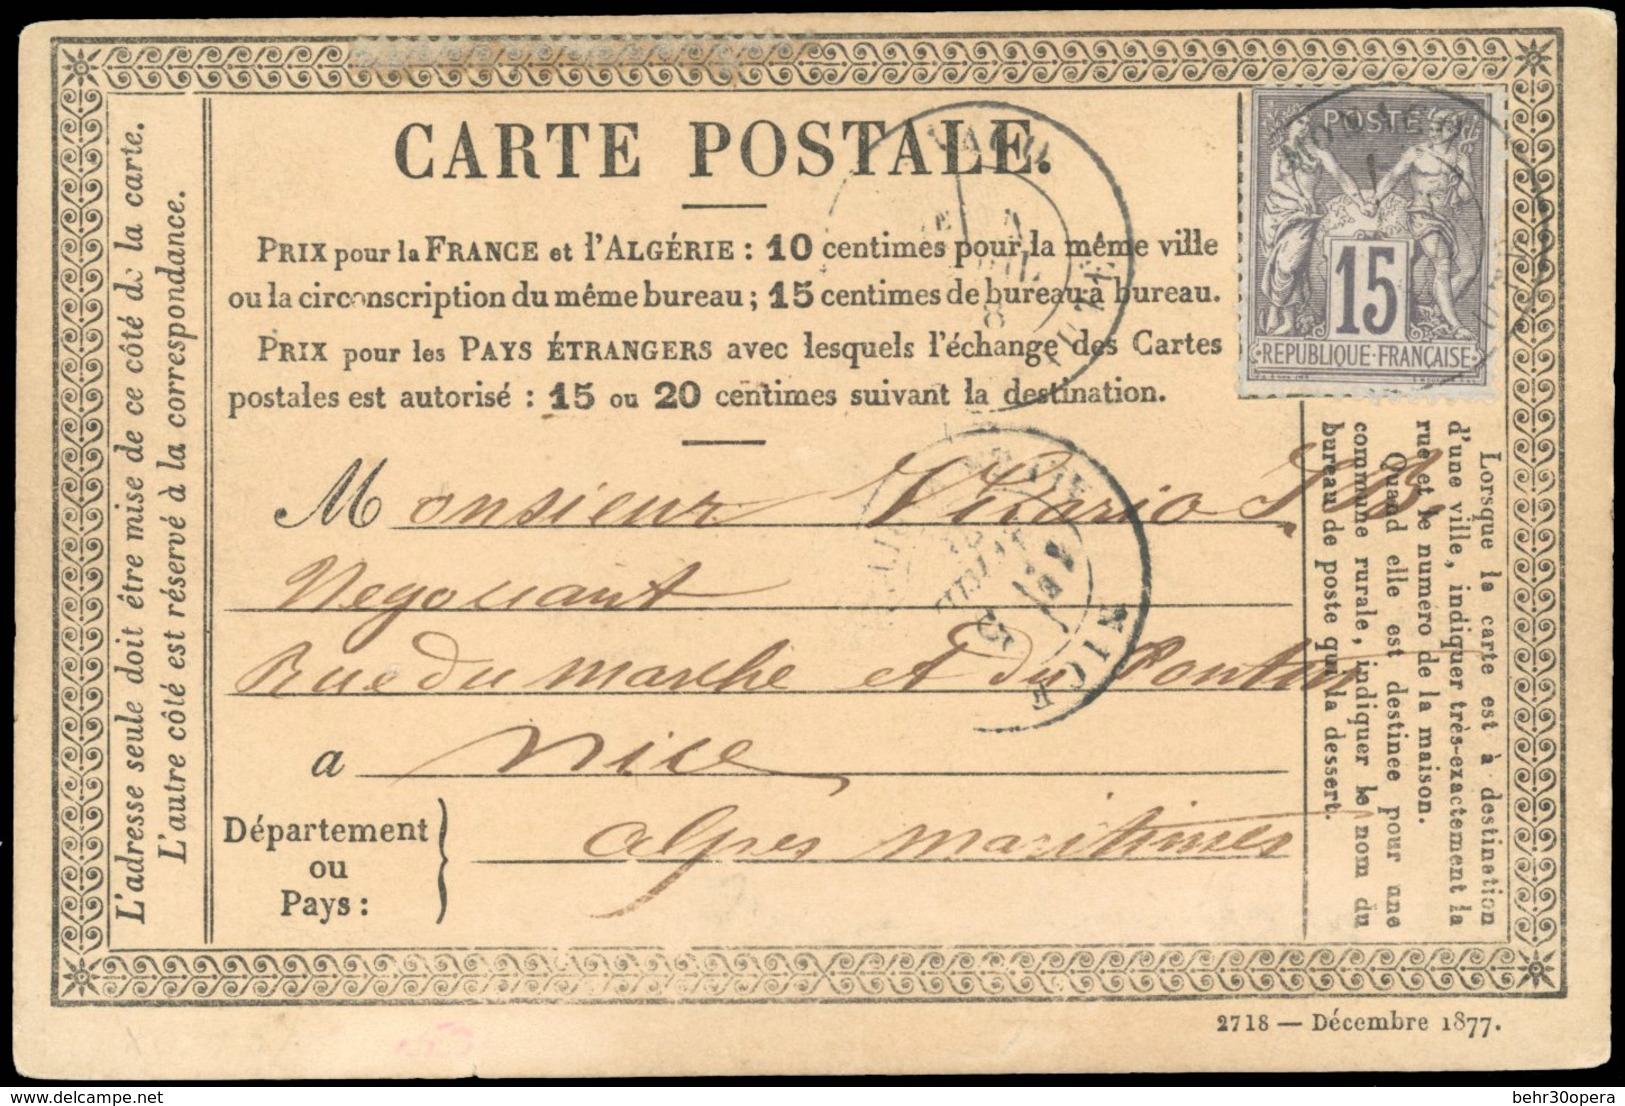 CARTE POSTALE.
PRIX pour la FRANCE et l'ALGÉRIE : 10 centimes pour la même ville
ou la circonscription du même bureau ; 15 centimes de bureau à bureau.
PRIX pour les PAYS ÉTRANGERS avec lesquels l'échange des Cartes
postales est autorisé : 15 ou 20 centimes suivant la destination.
POSTE
15
REPUBLIQUE·FRANÇAISE
L'adresse seule doit être mise de ce côté de la carte.
L'autre côté est réservé à la correspondance.
Monsieur Vicario J.B.
Negociant
Rue du marche et du Pontin
a nice
Département
ou
Pays :
alpes maritimes
NICE
Lorsque la carte est à destination
d'une ville, indiquer très-exactement la
rue et le numéro de la maison.
Quand elle est destinee pour une
commune rurale, indiquer le nom du
bureau de poste qui la dessert.
2718 — Décembre 1877.
delcampe.net
behr30opera